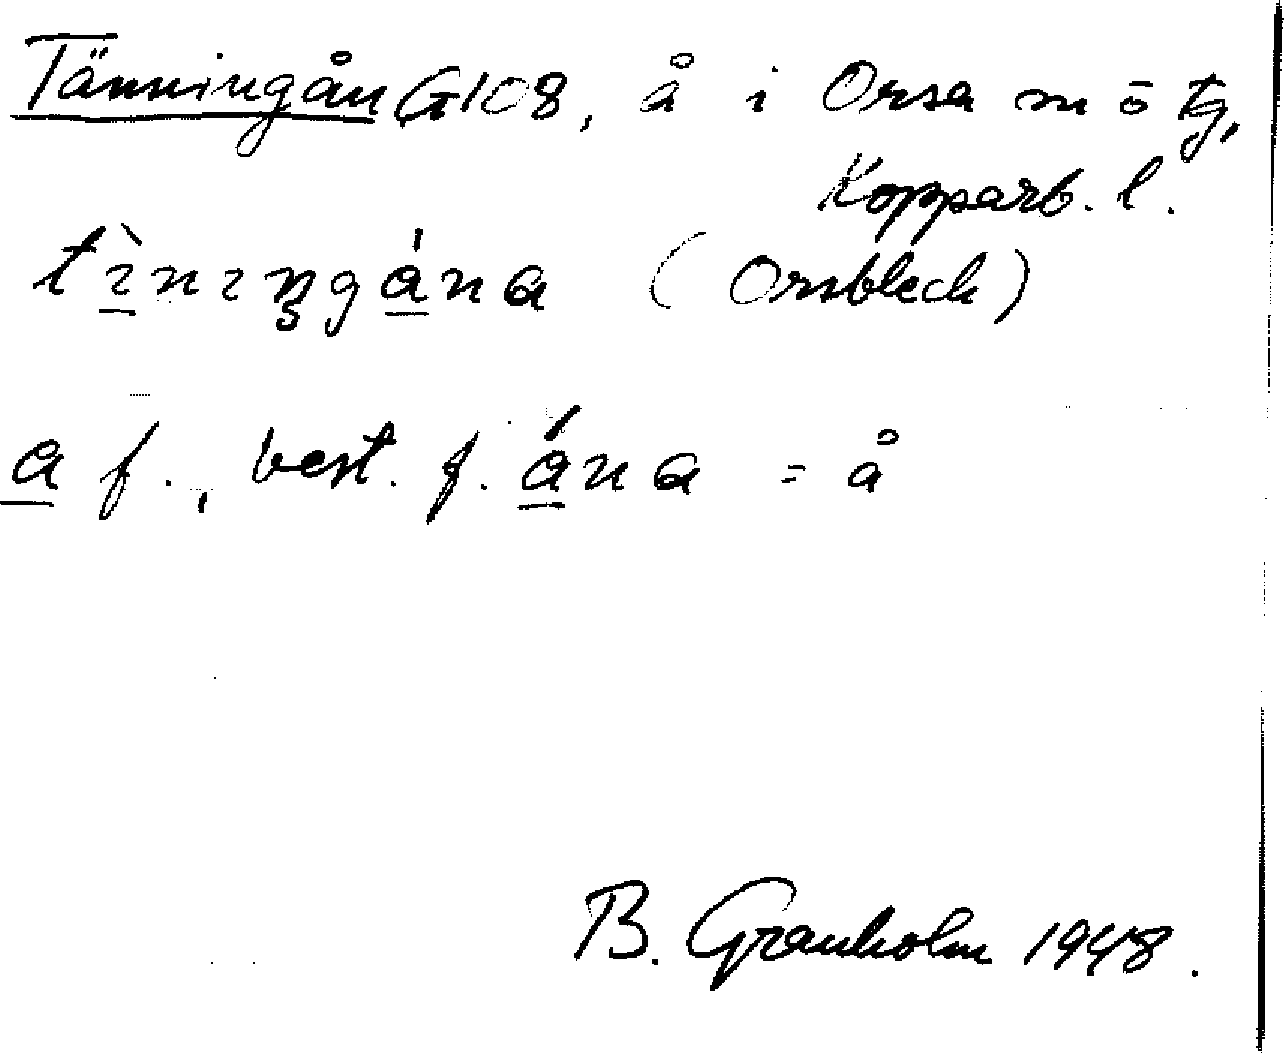 Tänningån G108, å i Orsa m ō tg,
Kopparb. l.
tı̠̀nıŋgá̠na (Orsbleck)
a̠ f., best. f. á̠na = å
B. Granholm 1948.